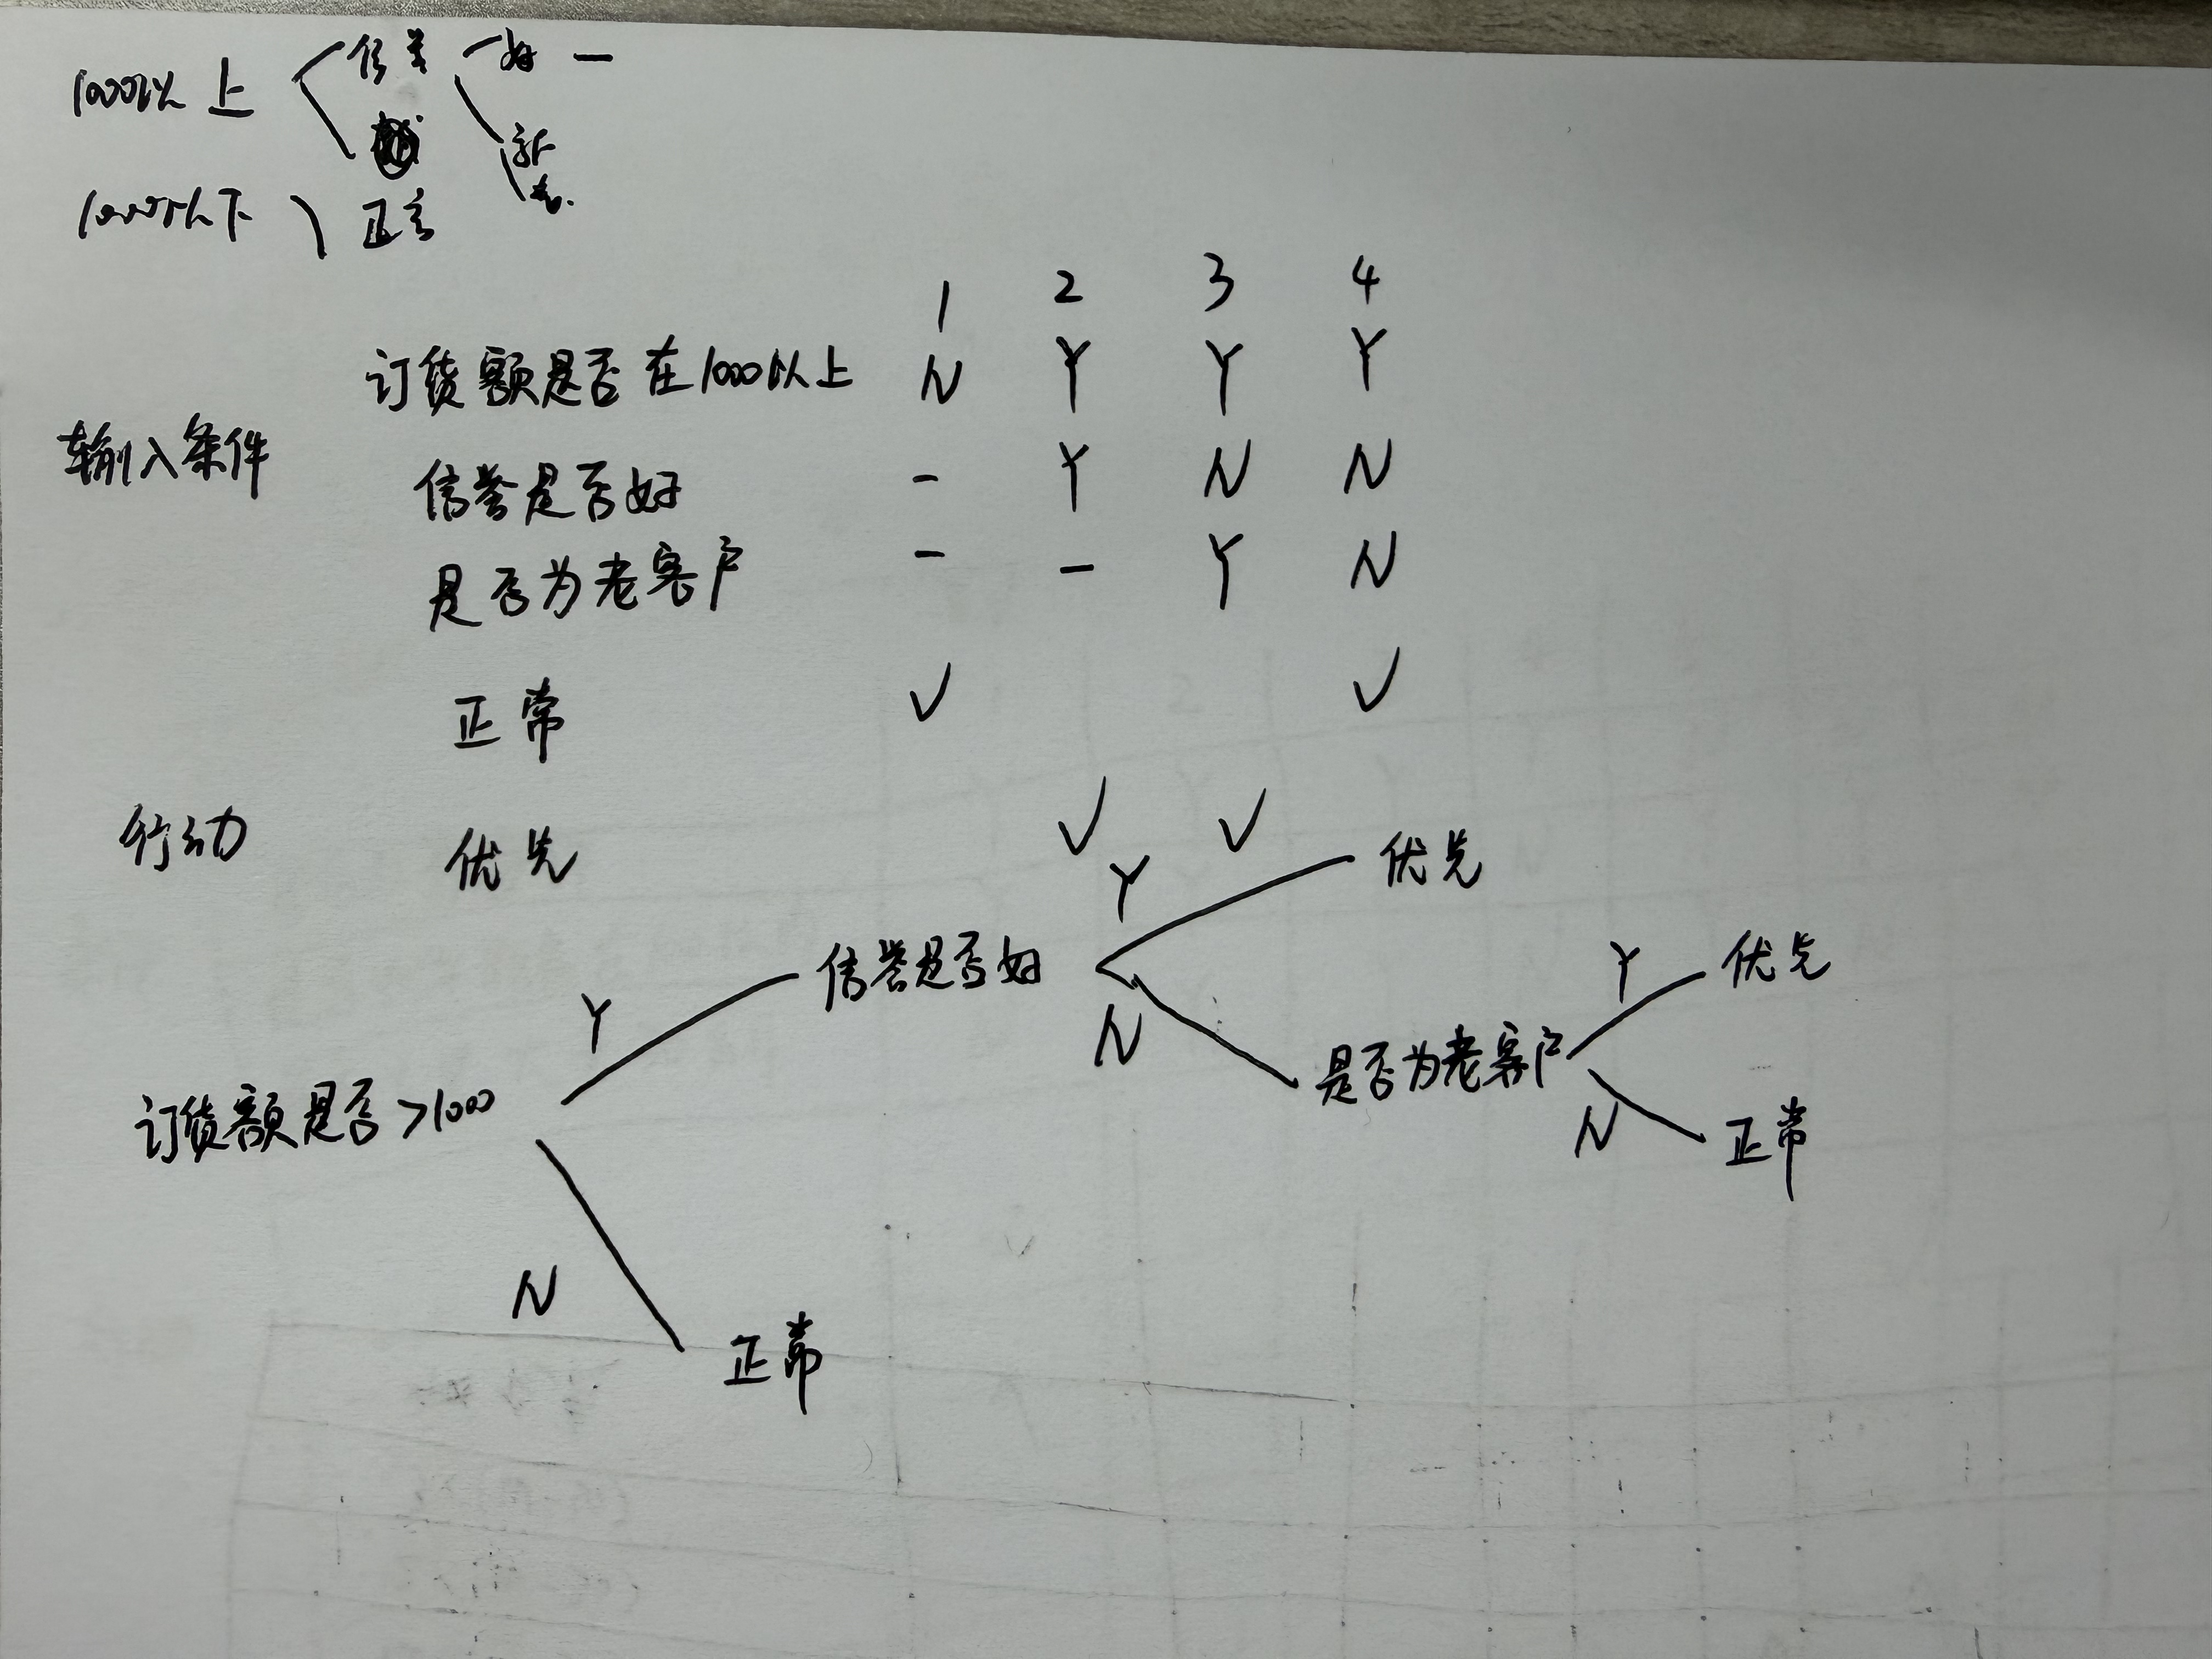 1000以上 信誉 好 一
新
老
1000以下 正常
1 2 3 4
订货额是否在1000以上 N Y Y Y
输入条件
信誉是否好 - Y N N
是否为老客户 - - Y N
正常 √ √
行动 优先 √ √
Y 优先
Y 信誉是否好 Y 优先
N 是否为老客户
订货额是否>1000 N 正常
N
正常